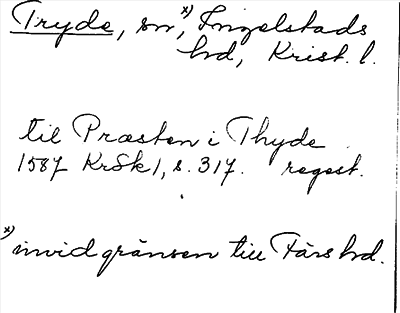 Tryde, sn, x) Ingelstads
hd, Krist. l.
til Præsten i Thyde
1587 KrSk 1, s. 317. regest.
x) invid gränsen till Färs hd.